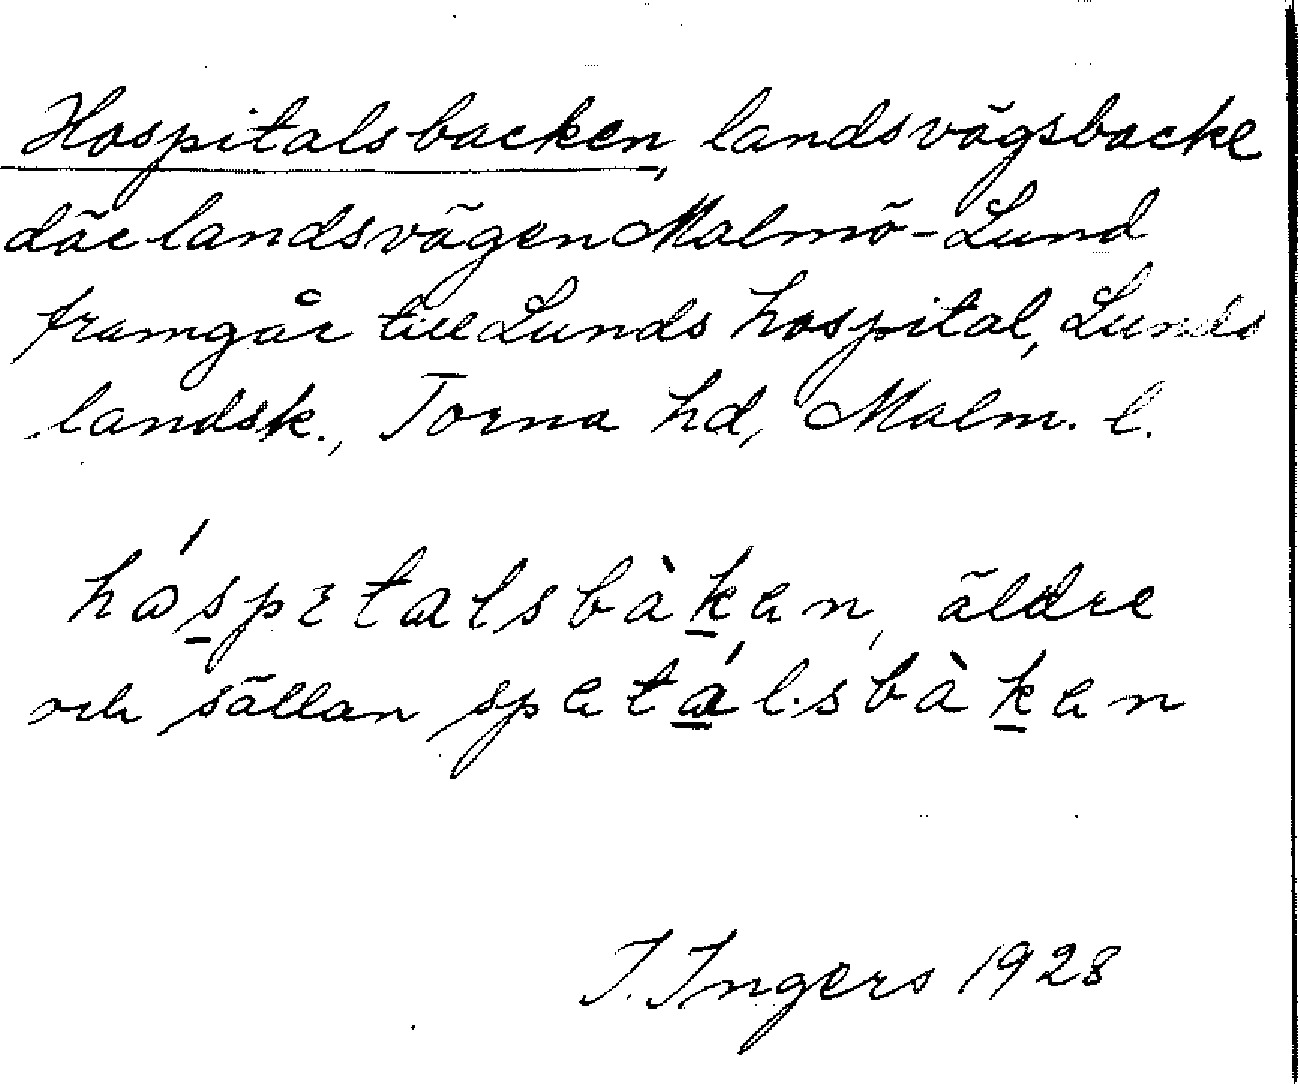 Hospitalsbacken, landsvägsbacke
där landsvägen Malmö-Lund
framgår till Lunds hospital, Lunds
landsk., Torna hd, Malm. l.
hóspetalsbàkən, äldre
och sällan spətálsbàkən
I. Ingers 1928